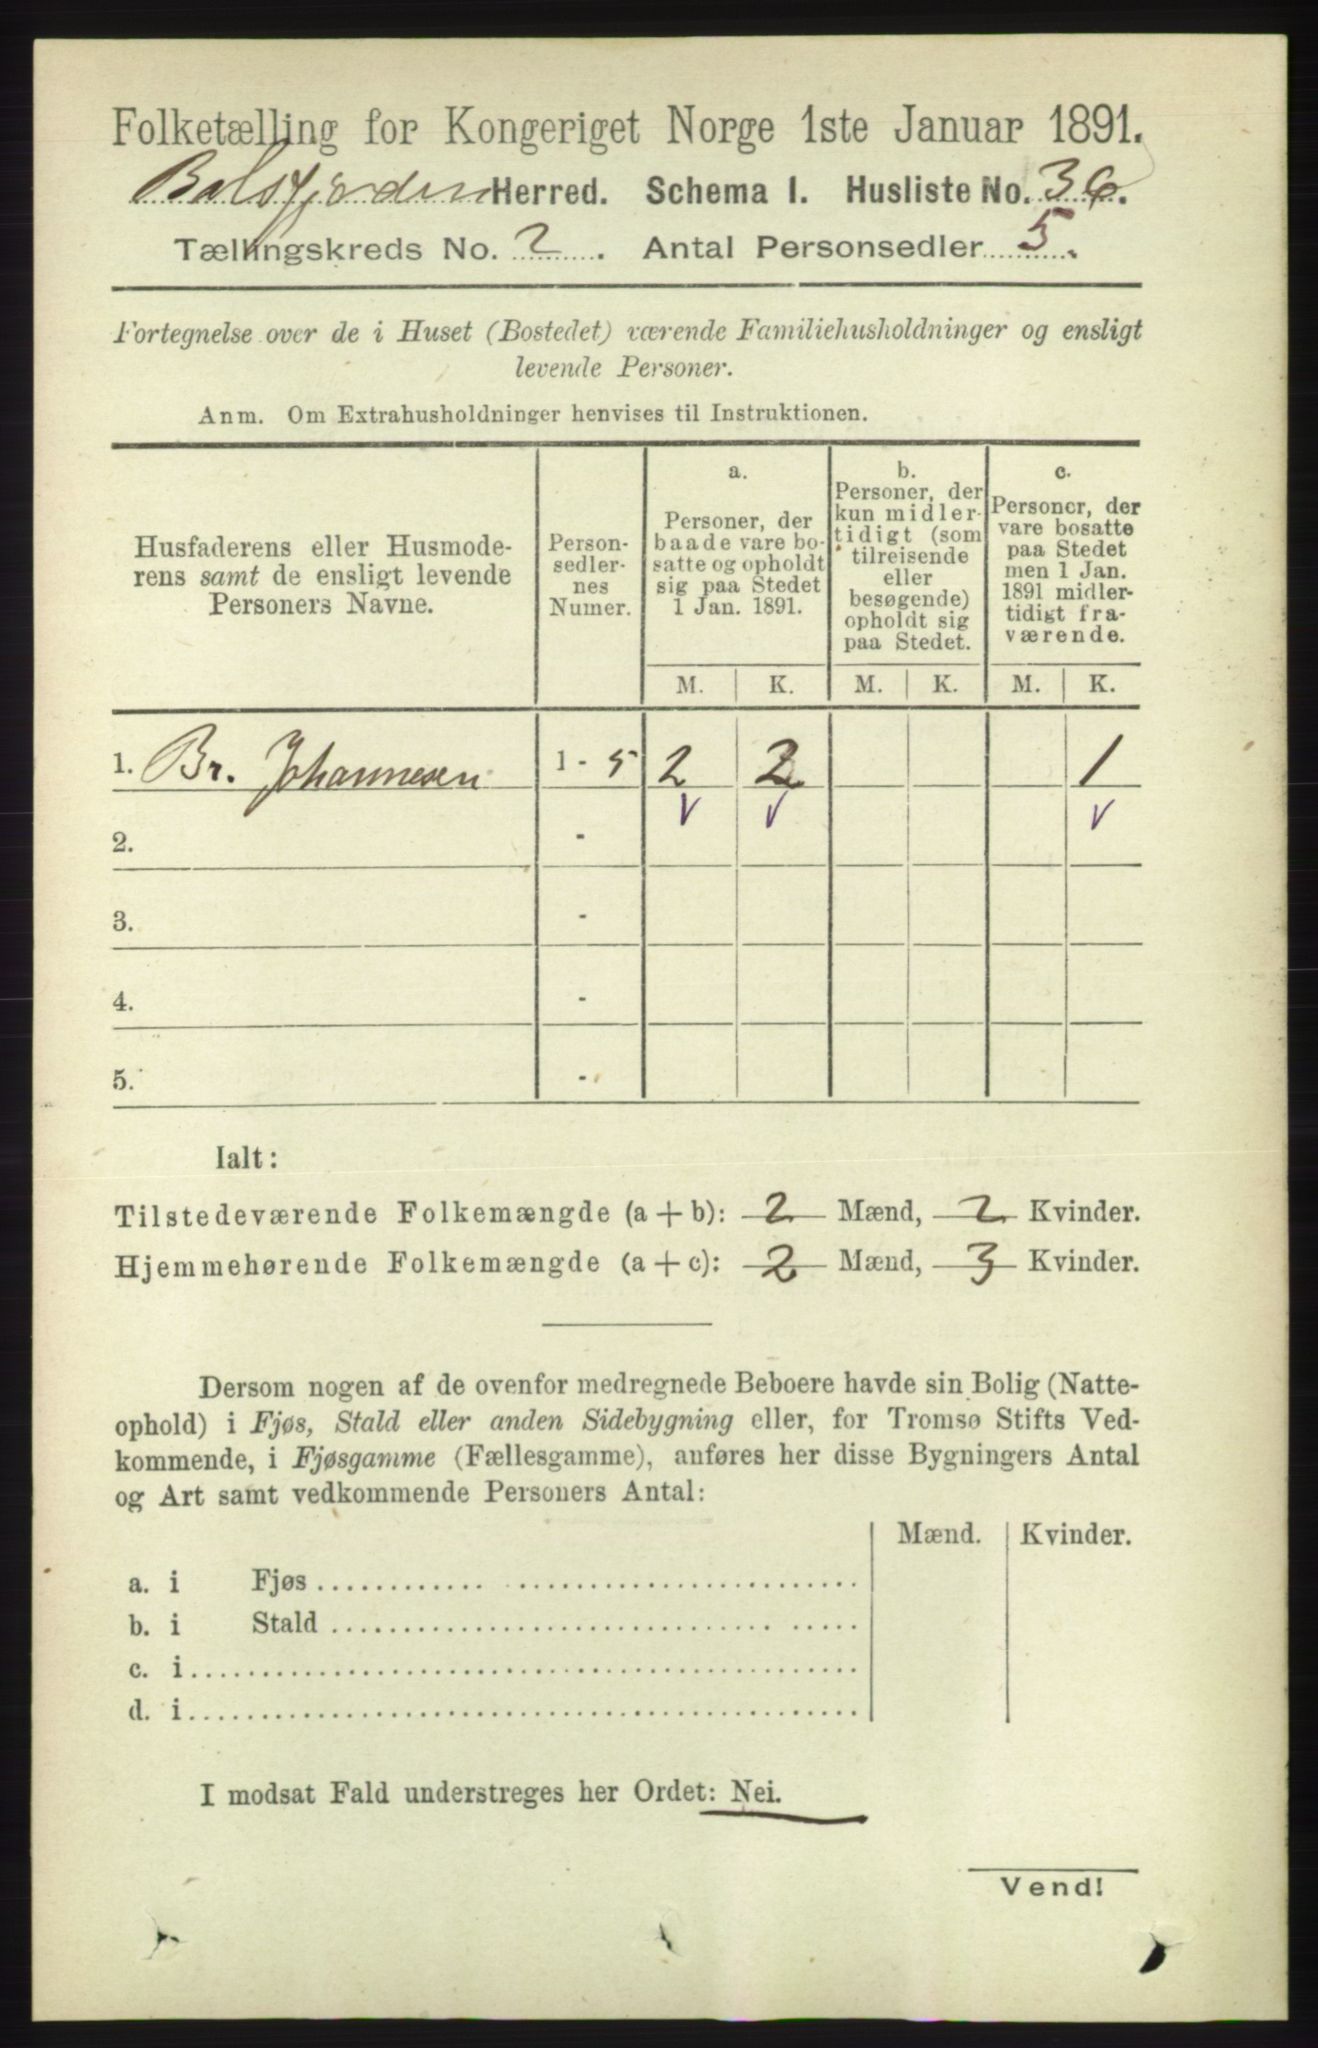 Folketælling for Kongeriget Norge 1ste Januar 1891.
Balsfjorden Herred. Schema I. Husliste No. 36.
Tællingskreds No. 2. Antal Personsedler 5.
Fortegnelse over de i Huset (Bostedet) værende Familiehusholdninger og ensligt
levende Personer.
Anm. Om Extrahusholdninger henvises til Instruktionen.
Husfaderens eller Husmode-
rens samt de ensligt levende
Personers Navne.
Person-
sedler-
nes
Numer.
a.
Personer, der
baade vare bo-
satte og opholdt
sig paa Stedet
1 Jan. 1891.
b.
Personer, der
kun midler-
tidigt (som
tilreisende
eller
besøgende)
opholdt sig
paa Stedet.
c.
Personer, der
vare bosatte
paa Stedet
men 1 Jan.
1891 midler-
tidigt fra-
værende.
M. K. M. K. M. K.
1. Br. Johannesen 1 - 5 2 2 1
v v v
2. -
3. -
4. -
5. -
Ialt:
Tilstedeværende Folkemængde (a + b): 2 Mænd, 2 Kvinder.
Hjemmehørende Folkemængde (a + c): 2 Mænd, 3 Kvinder.
Dersom nogen af de ovenfor medregnede Beboere havde sin Bolig (Natte-
ophold) i Fjøs, Stald eller anden Sidebygning eller, for Tromsø Stifts Ved-
kommende, i Fjøsgamme (Fællesgamme), anføres her disse Bygningers Antal
og Art samt vedkommende Personers Antal:
Mænd. Kvinder.
a. i Fjøs
b. i Stald
c. i
d. i
I modsat Fald understreges her Ordet: Nei.
Vend!